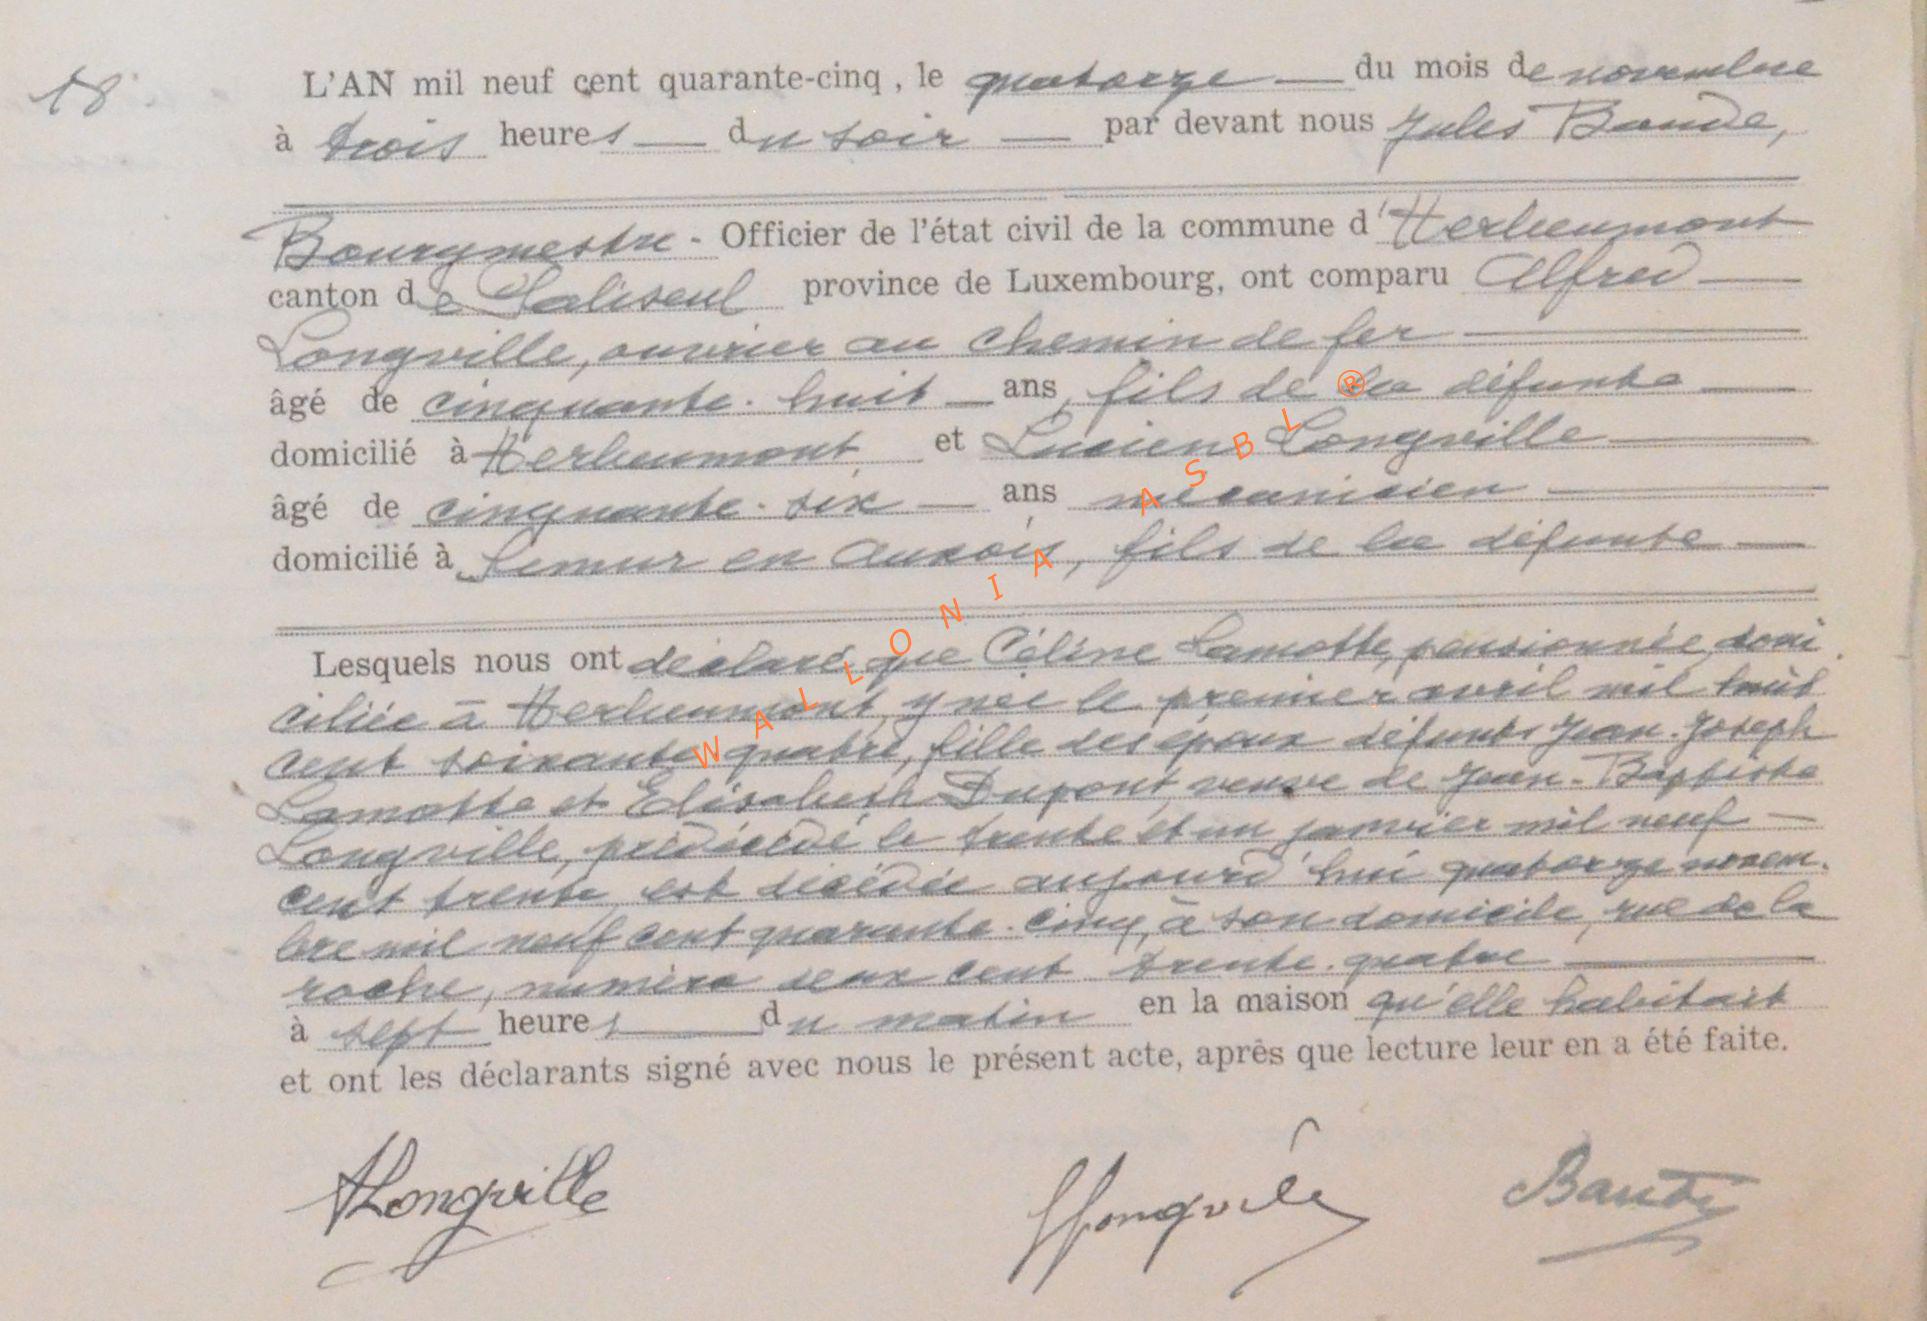 18
L'AN mil neuf cent quarante-cinq , le quatorze — du mois de novembre
à trois heures — du soir — par devant nous Jules Baude,
Bourgmestre - Officier de l'état civil de la commune d'Herbeumont
canton de Paliseul province de Luxembourg, ont comparu Alfred —
Longville, ouvrier au chemin de fer —
âgé de cinquante-huit — ans, fils de la défunte —
domicilié à Herbeumont et Lucien Longville —
âgé de cinquante-six — ans mécanicien —
domicilié à Semur en Auxois, fils de la défunte —
Lesquels nous ont déclaré que Céline Lamotte, pensionnée, domi
ciliée à Herbeumont, y née le premier avril mil huit
cent soixante quatre, fille des époux défunts Jean-Joseph
Lamotte et Elisabeth Dupont, veuve de Jean-Baptiste
Longville, prédécédé le trente et un janvier mil neuf —
cent trente, est décédée aujourd'hui quatorze novem-
bre mil neuf cent quarante-cinq, à son domicile, rue de la
roche, numéro deux cent trente-quatre —
à sept heures — du matin en la maison qu'elle habitait
et ont les déclarants signé avec nous le présent acte, après que lecture leur en a été faite.
ALongville LLongville Baude
WALLONIA ASBL ®